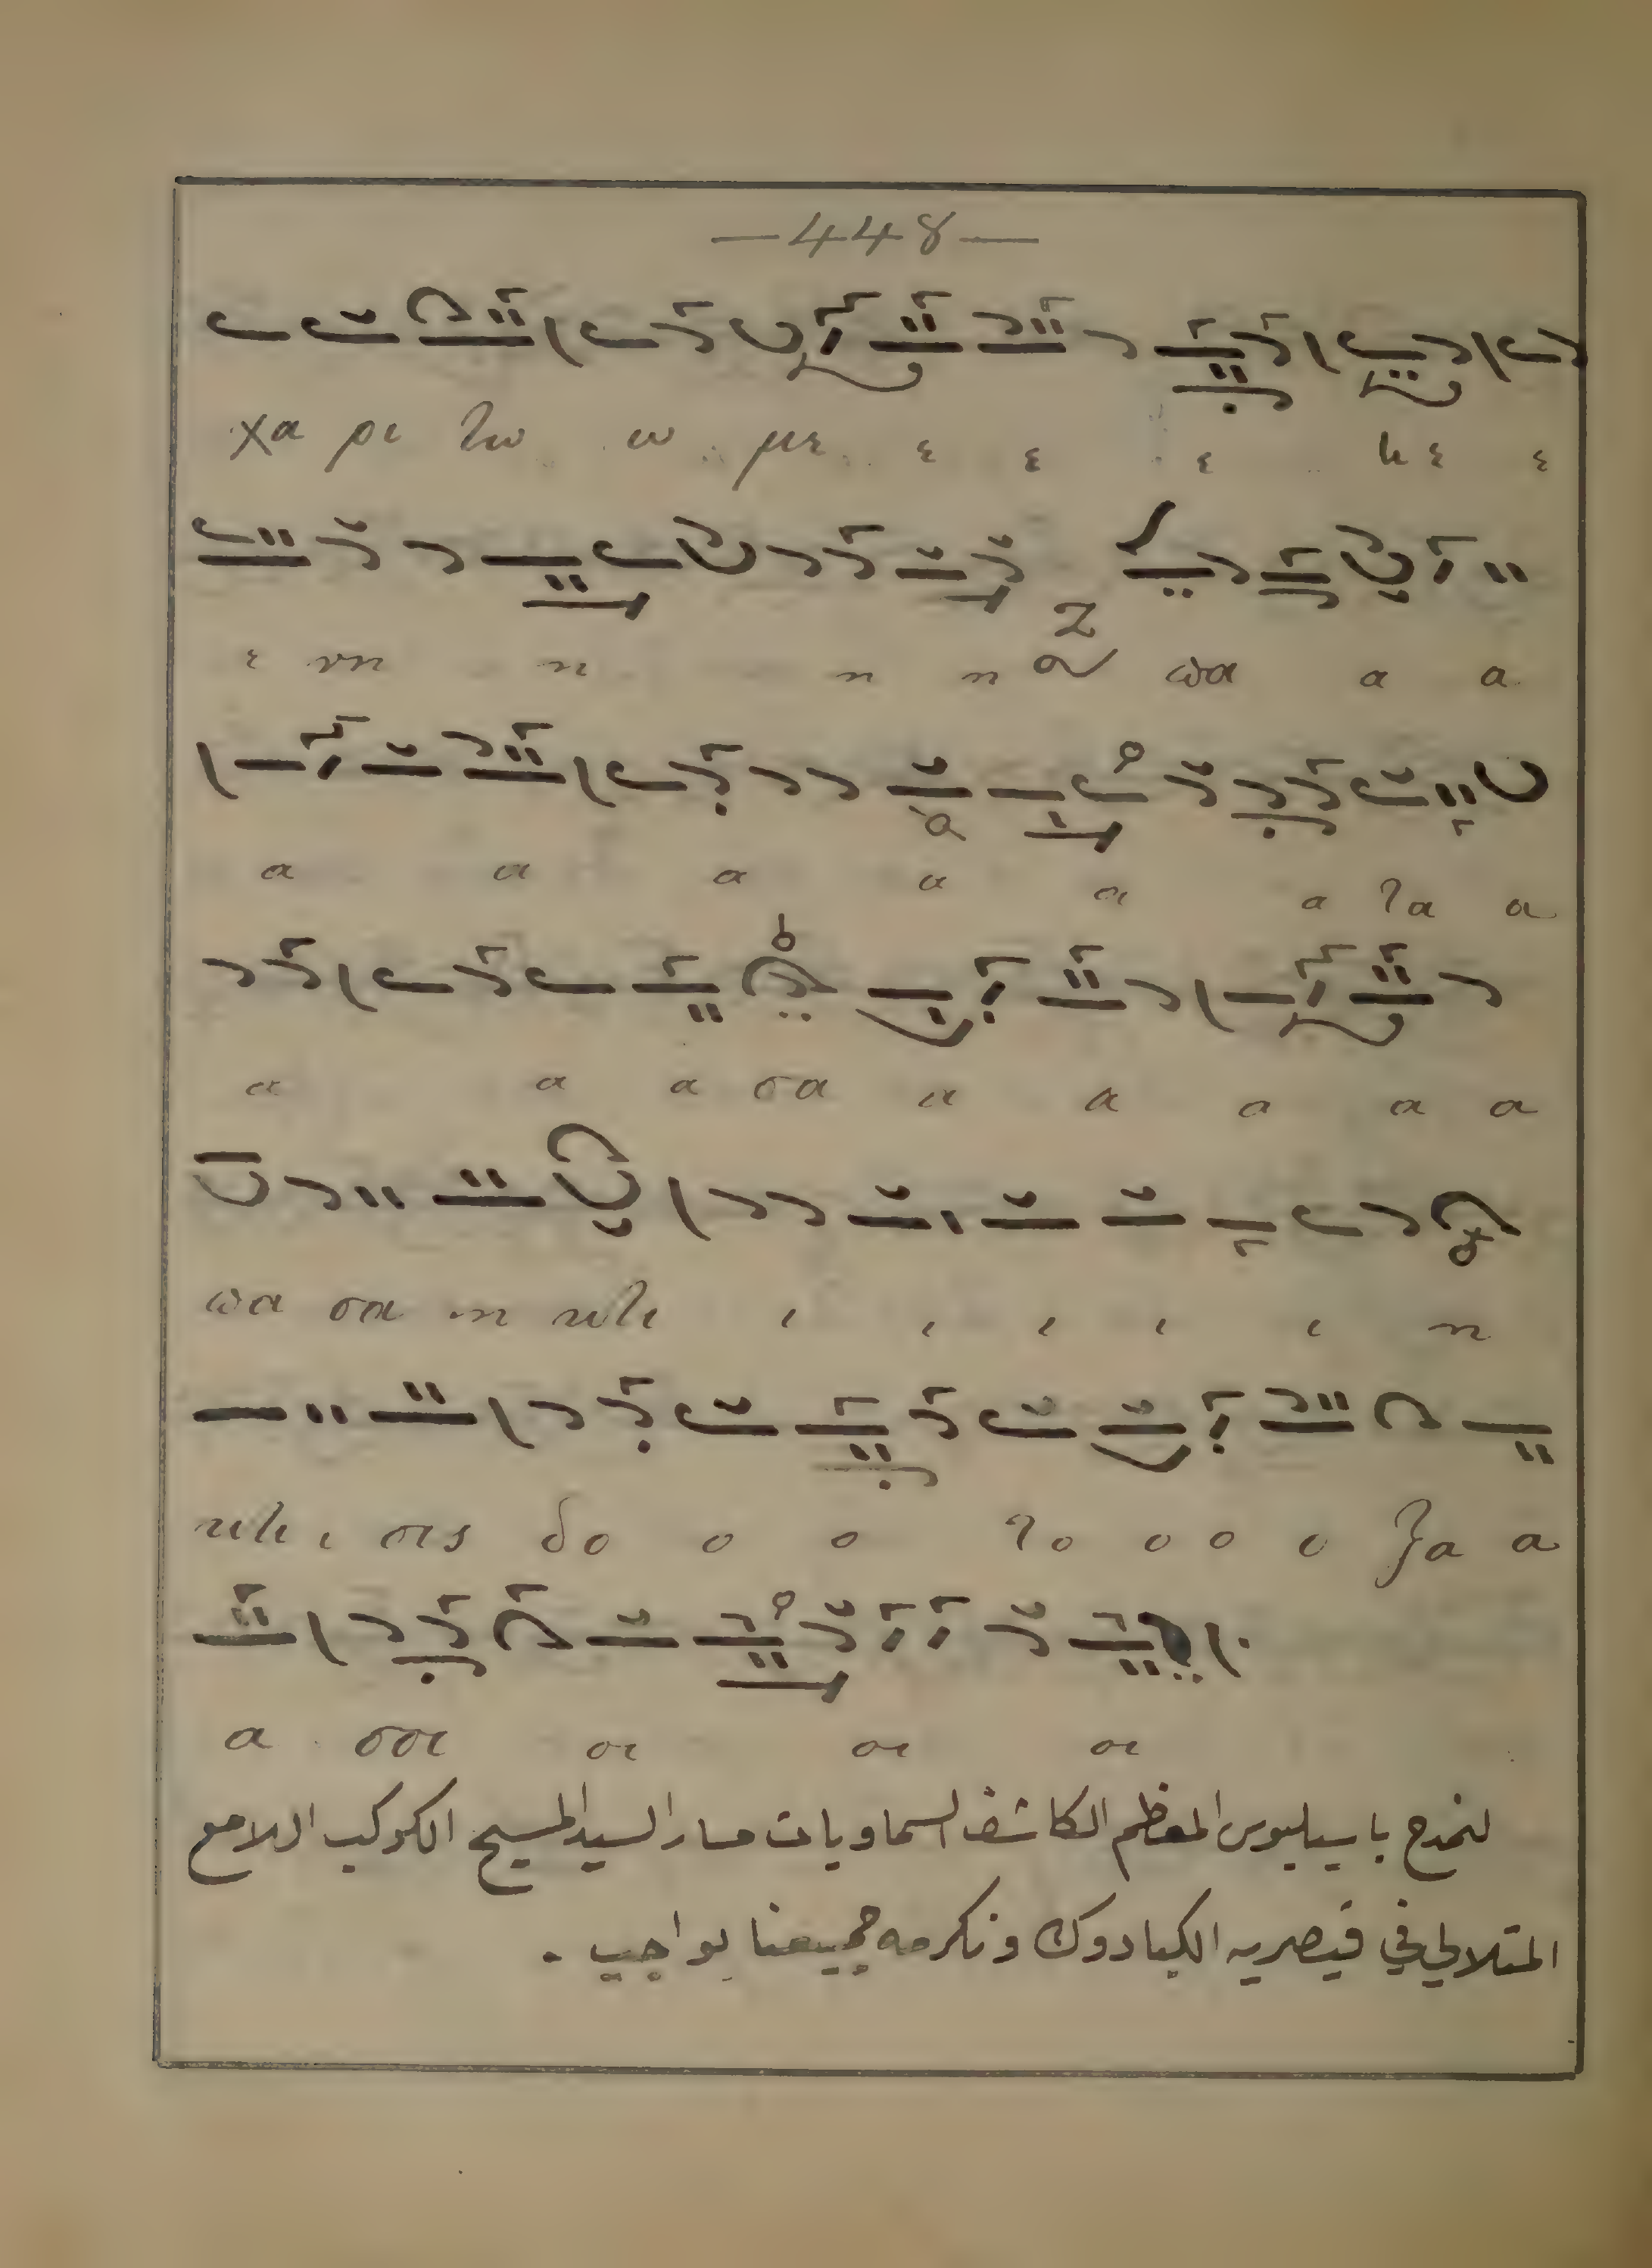 —448—
χα ρι τω ω με ε ε ε κε ε
ε νη η η η πα α α
α α α α α α τα α
α α α σα α α α α α
πα σα η κτι ι ι ι ι ι η
κτι ι σις δο ο ο το ο ο ο ξα α
α σοι οι οι οι
لنمدح باسيليوس المعظم الكاشف السماويات مسار السيد المسيح الكوكب اللامع
المتلالي في قيصريه الكبادوك ونكرمه جميعنا بواجب .